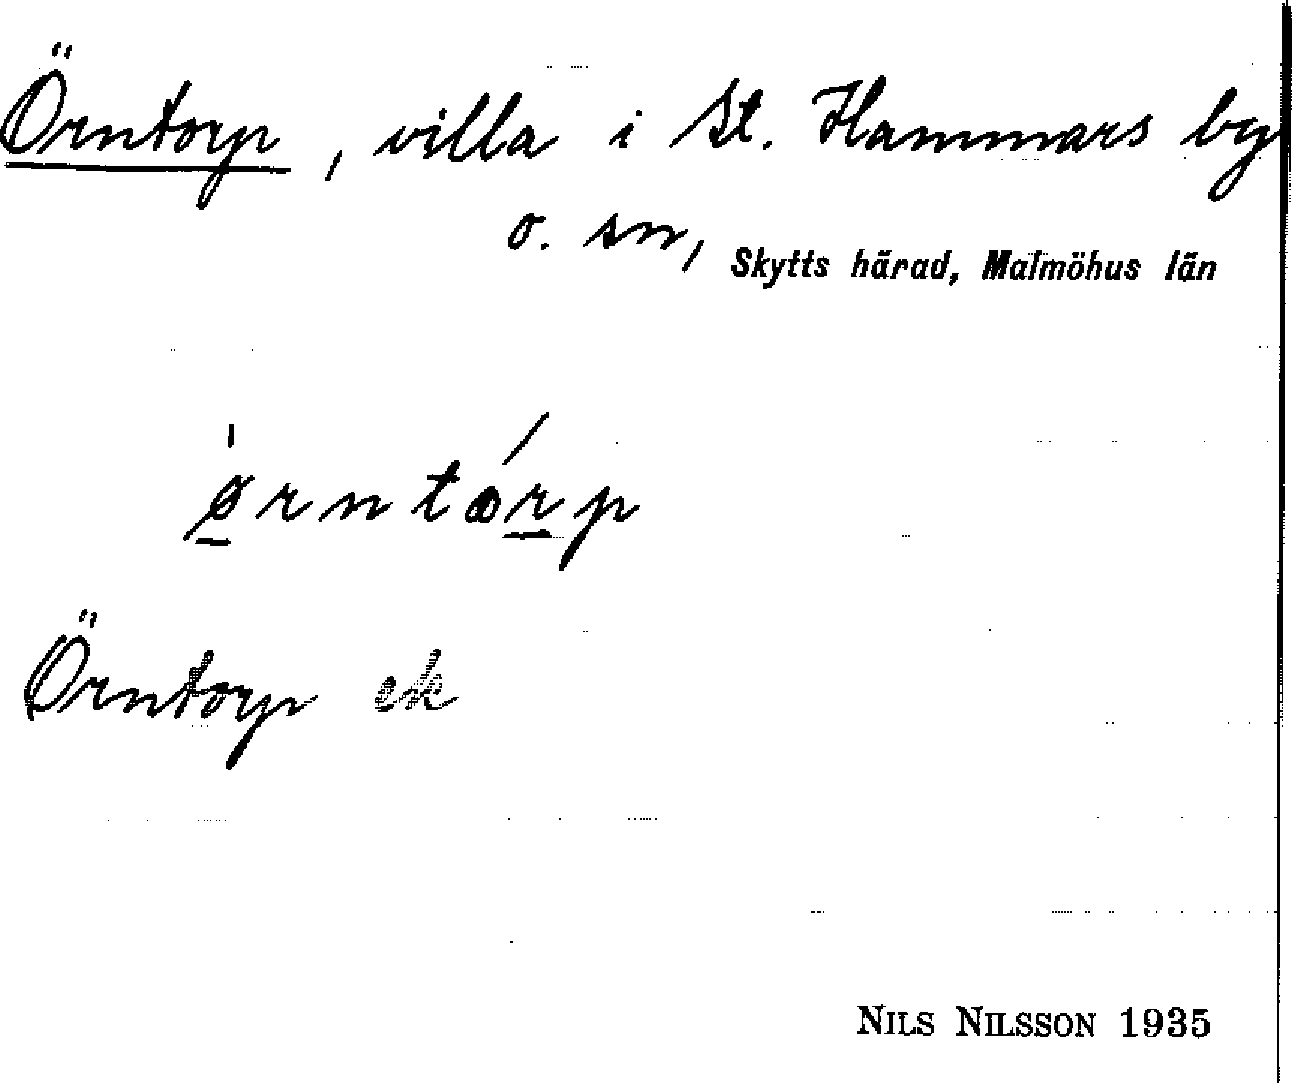 Örntorp, villa i St. Hammars by
o. sn, Skytts härad, Malmöhus län
ørntorp
Örntorp ek
NILS NILSSON 1935